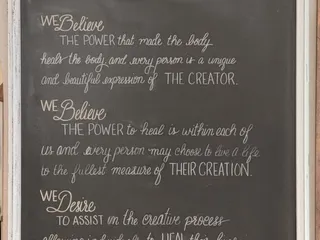 WE Believe
THE POWER that made the body
heals the body and every person is a unique
and beautiful expression of THE CREATOR.
WE Believe
THE POWER to heal is within each of
us and every person may choose to live a life
to the fullest measure of THEIR CREATION.
WE Desire
TO ASSIST in the creative process